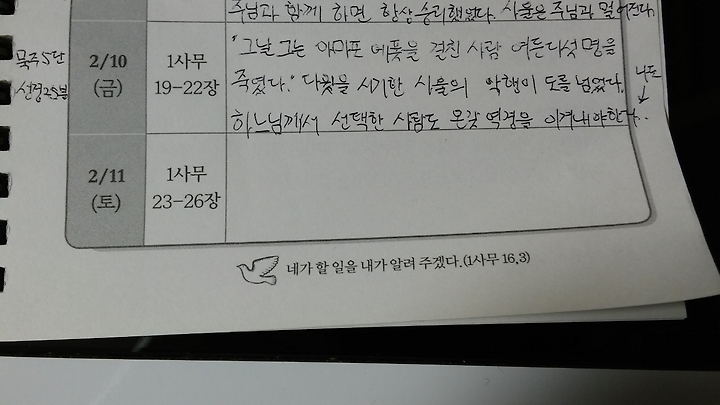 주님과 함께 하면 항상 승리했었다. 사울은 주님과 멀어진다.
묵주5단
성경25분
2/10
(금)
1사무
19-22장
"그날 그는 아마포 에폿을 걸친 사람 여든다섯 명을
죽였다." 다윗을 시기한 사울의 악행이 도를 넘었다.
하느님께서 선택한 사람도 온갖 역경을 이겨내야한다..
나도
↓
2/11
(토)
1사무
23-26장
네가 할 일을 내가 알려 주겠다.(1사무 16,3)